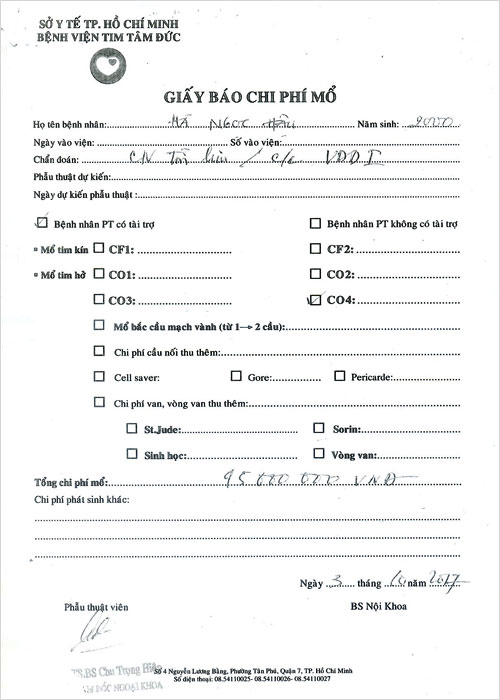 SỞ Y TẾ TP. HỒ CHÍ MINH
BỆNH VIỆN TIM TÂM ĐỨC
GIẤY BÁO CHI PHÍ MỔ
Họ tên bệnh nhân: MÃ NGỌC Năm sinh: 2000
Ngày vào viện: Số vào viện:
Chẩn đoán:
Phẫu thuật dự kiến:
Ngày dự kiến phẫu thuật :
Bệnh nhân PT có tài trợ Bệnh nhân PT không có tài trợ
Mổ tim kín CF1: CF2:
Mổ tim hở CO1: CO2:
CO3: CO4:
Mổ bắc cầu mạch vành (từ 1→ 2 cầu):
Chi phí cầu nối thu thêm:
Cell saver: Gore: Pericarde:
Chi phí van, vòng van thu thêm:
St.Jude: Sorin:
Sinh học: Vòng van:
Tổng chi phí mổ: 95 000 000 VNĐ
Chi phí phát sinh khác:
Ngày 3 tháng 10 năm 2017
Phẫu thuật viên BS Nội Khoa
TS.BS Chu Trọng Hiệp
Số 4 Nguyễn Lương Bằng, Phường Tân Phú, Quận 7, TP. Hồ Chí Minh
GIÁM ĐỐC NGOẠI KHOA
Số điện thoại: 08.54110025- 08.54110026- 08.54110027